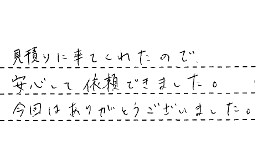 見積りに来てくれたので、
安心して依頼できました。
今回はありがとうございました。